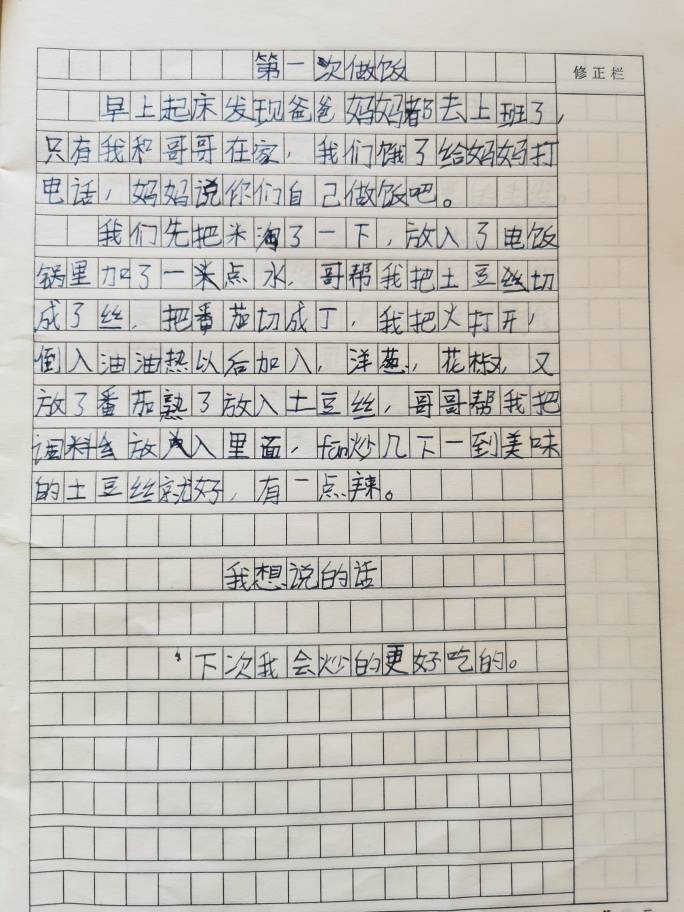 第一次做饭
修正栏
早上起床发现爸爸妈妈都去上班了,
只有我和哥哥在家,我们饿了给妈妈打
电话,妈妈说你们自己做饭吧。
我们先把米淘了一下,放入了电饭
锅里加了一点水,哥帮我把土豆丝切
成了丝,把番茄切成丁,我把火打开,
倒入油油热以后加入,洋葱,花椒,又
放了番茄熟了放入土豆丝,哥哥帮我把
调料放入里面,fan炒几下一到美味
的土豆丝就好,有一点辣。
我想说的话
下次我会炒的更好吃的。